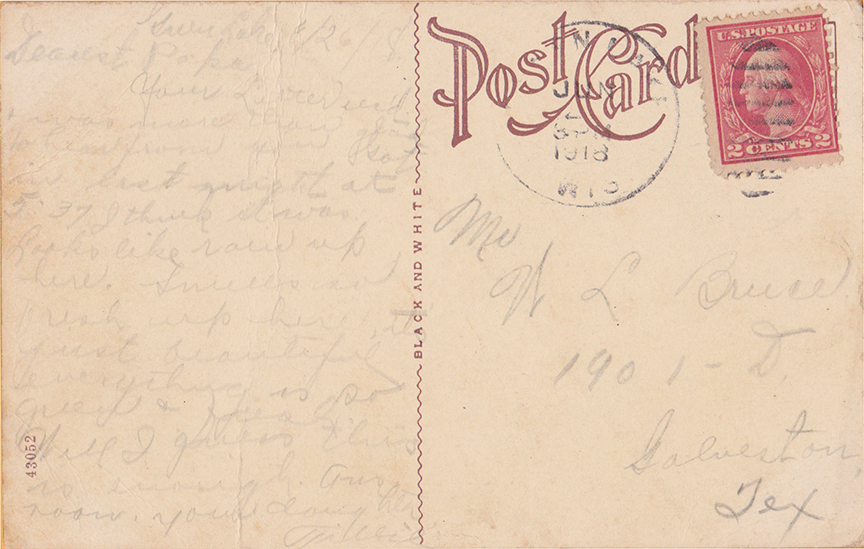 Green Lake 6/26/18
Dearest Papa
Your Letter rec'd
& was more than glad
to hear from you. I got
in last night at
5:37 I think it was.
Looks like rain up
here. Smells so
fresh up here, it's
just beautiful
everything is so
green &
Well I guess this
is enough. Ans
soon. your daughter
Tillie
43052
BLACK AND WHITE
Post Card
JUN
1918
WIS.
U.S. POSTAGE
2 CENTS 2
Mr.
W L Bruce
1901 - D.
Galveston
Tex